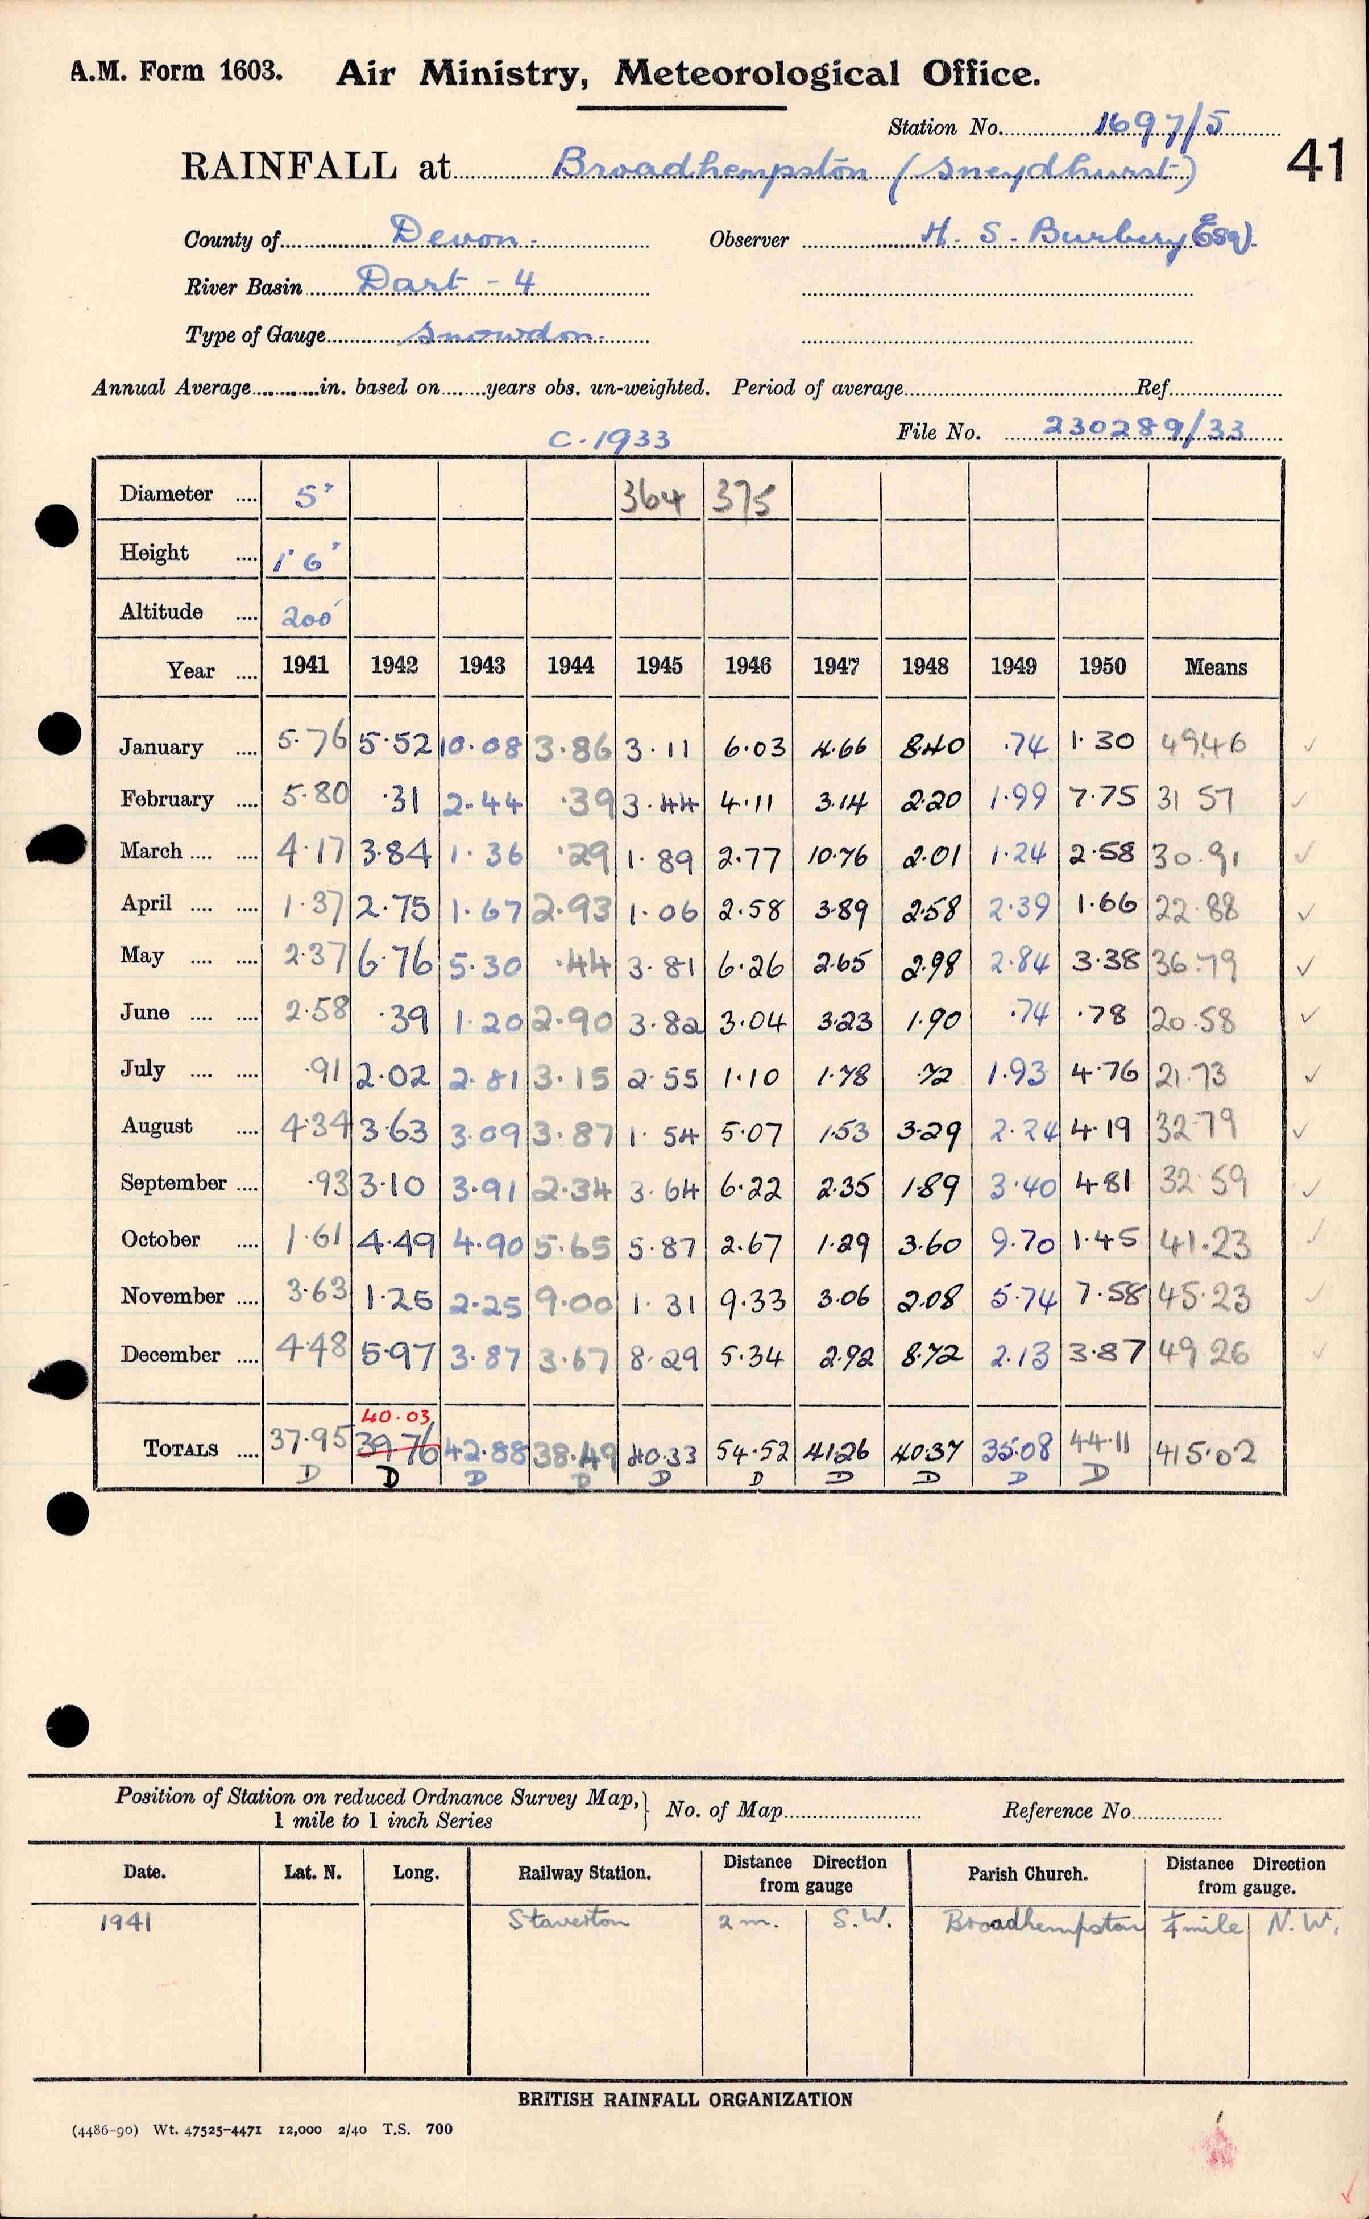 A.M. Form 1603. Air Ministry, Meteorological Office.
Station No. 1697/5
41
RAINFALL at Broadhempston (Sneydhurst)
County of Devon. Observer H. S. Burbery Esq.
River Basin Dart - 4
Type of Gauge Snowdon.
Annual Average in. based on years obs. un-weighted. Period of average Ref.
C. 1933 File No. 230289/33
Diameter 5" 364 375
Height 1' 6"
Altitude 200'
Year 1941 1942 1943 1944 1945 1946 1947 1948 1949 1950 Means
January 5.76 5.52 10.08 3.86 3.11 6.03 4.66 8.40 .74 1.30 49.46 ✓
February 5.80 .31 2.44 .39 3.44 4.11 3.14 2.20 1.99 7.75 31 57 ✓
March 4.17 3.84 1.36 .29 1.89 2.77 10.76 2.01 1.24 2.58 30.91 ✓
April 1.37 2.75 1.67 2.93 1.06 2.58 3.89 2.58 2.39 1.66 22.88 ✓
May 2.37 6.76 5.30 .44 3.81 6.26 2.65 2.98 2.84 3.38 36.79 ✓
June 2.58 .39 1.20 2.90 3.82 3.04 3.23 1.90 .74 .78 20.58 ✓
July .91 2.02 2.81 3.15 2.55 1.10 1.78 .72 1.93 4.76 21.73 ✓
August 4.34 3.63 3.09 3.87 1.54 5.07 1.53 3.29 2.24 4.19 32.79 ✓
September .93 3.10 3.91 2.34 3.64 6.22 2.35 1.89 3.40 4.81 32.59 ✓
October 1.61 4.49 4.90 5.65 5.87 2.67 1.29 3.60 9.70 1.45 41.23 ✓
November 3.63 1.25 2.25 9.00 1.31 9.33 3.06 2.08 5.74 7.58 45.23 ✓
December 4.48 5.97 3.87 3.67 8.29 5.34 2.92 8.72 2.13 3.87 49.26 ✓
40.03
TOTALS 37.95 39.76 42.88 38.49 40.33 54.52 41.26 40.37 35.08 44.11 415.02
D D D D D D D D D D
Position of Station on reduced Ordnance Survey Map, } No. of Map Reference No.
1 mile to 1 inch Series
Date. Lat. N. Long. Railway Station. Distance from gauge Direction Parish Church. Distance from gauge. Direction
1941 Staverton 2 m. S.W. Broadhempston ¼ mile N.W.
BRITISH RAINFALL ORGANIZATION
(4486-90) Wt. 47525-4471 12,000 2/40 T.S. 700